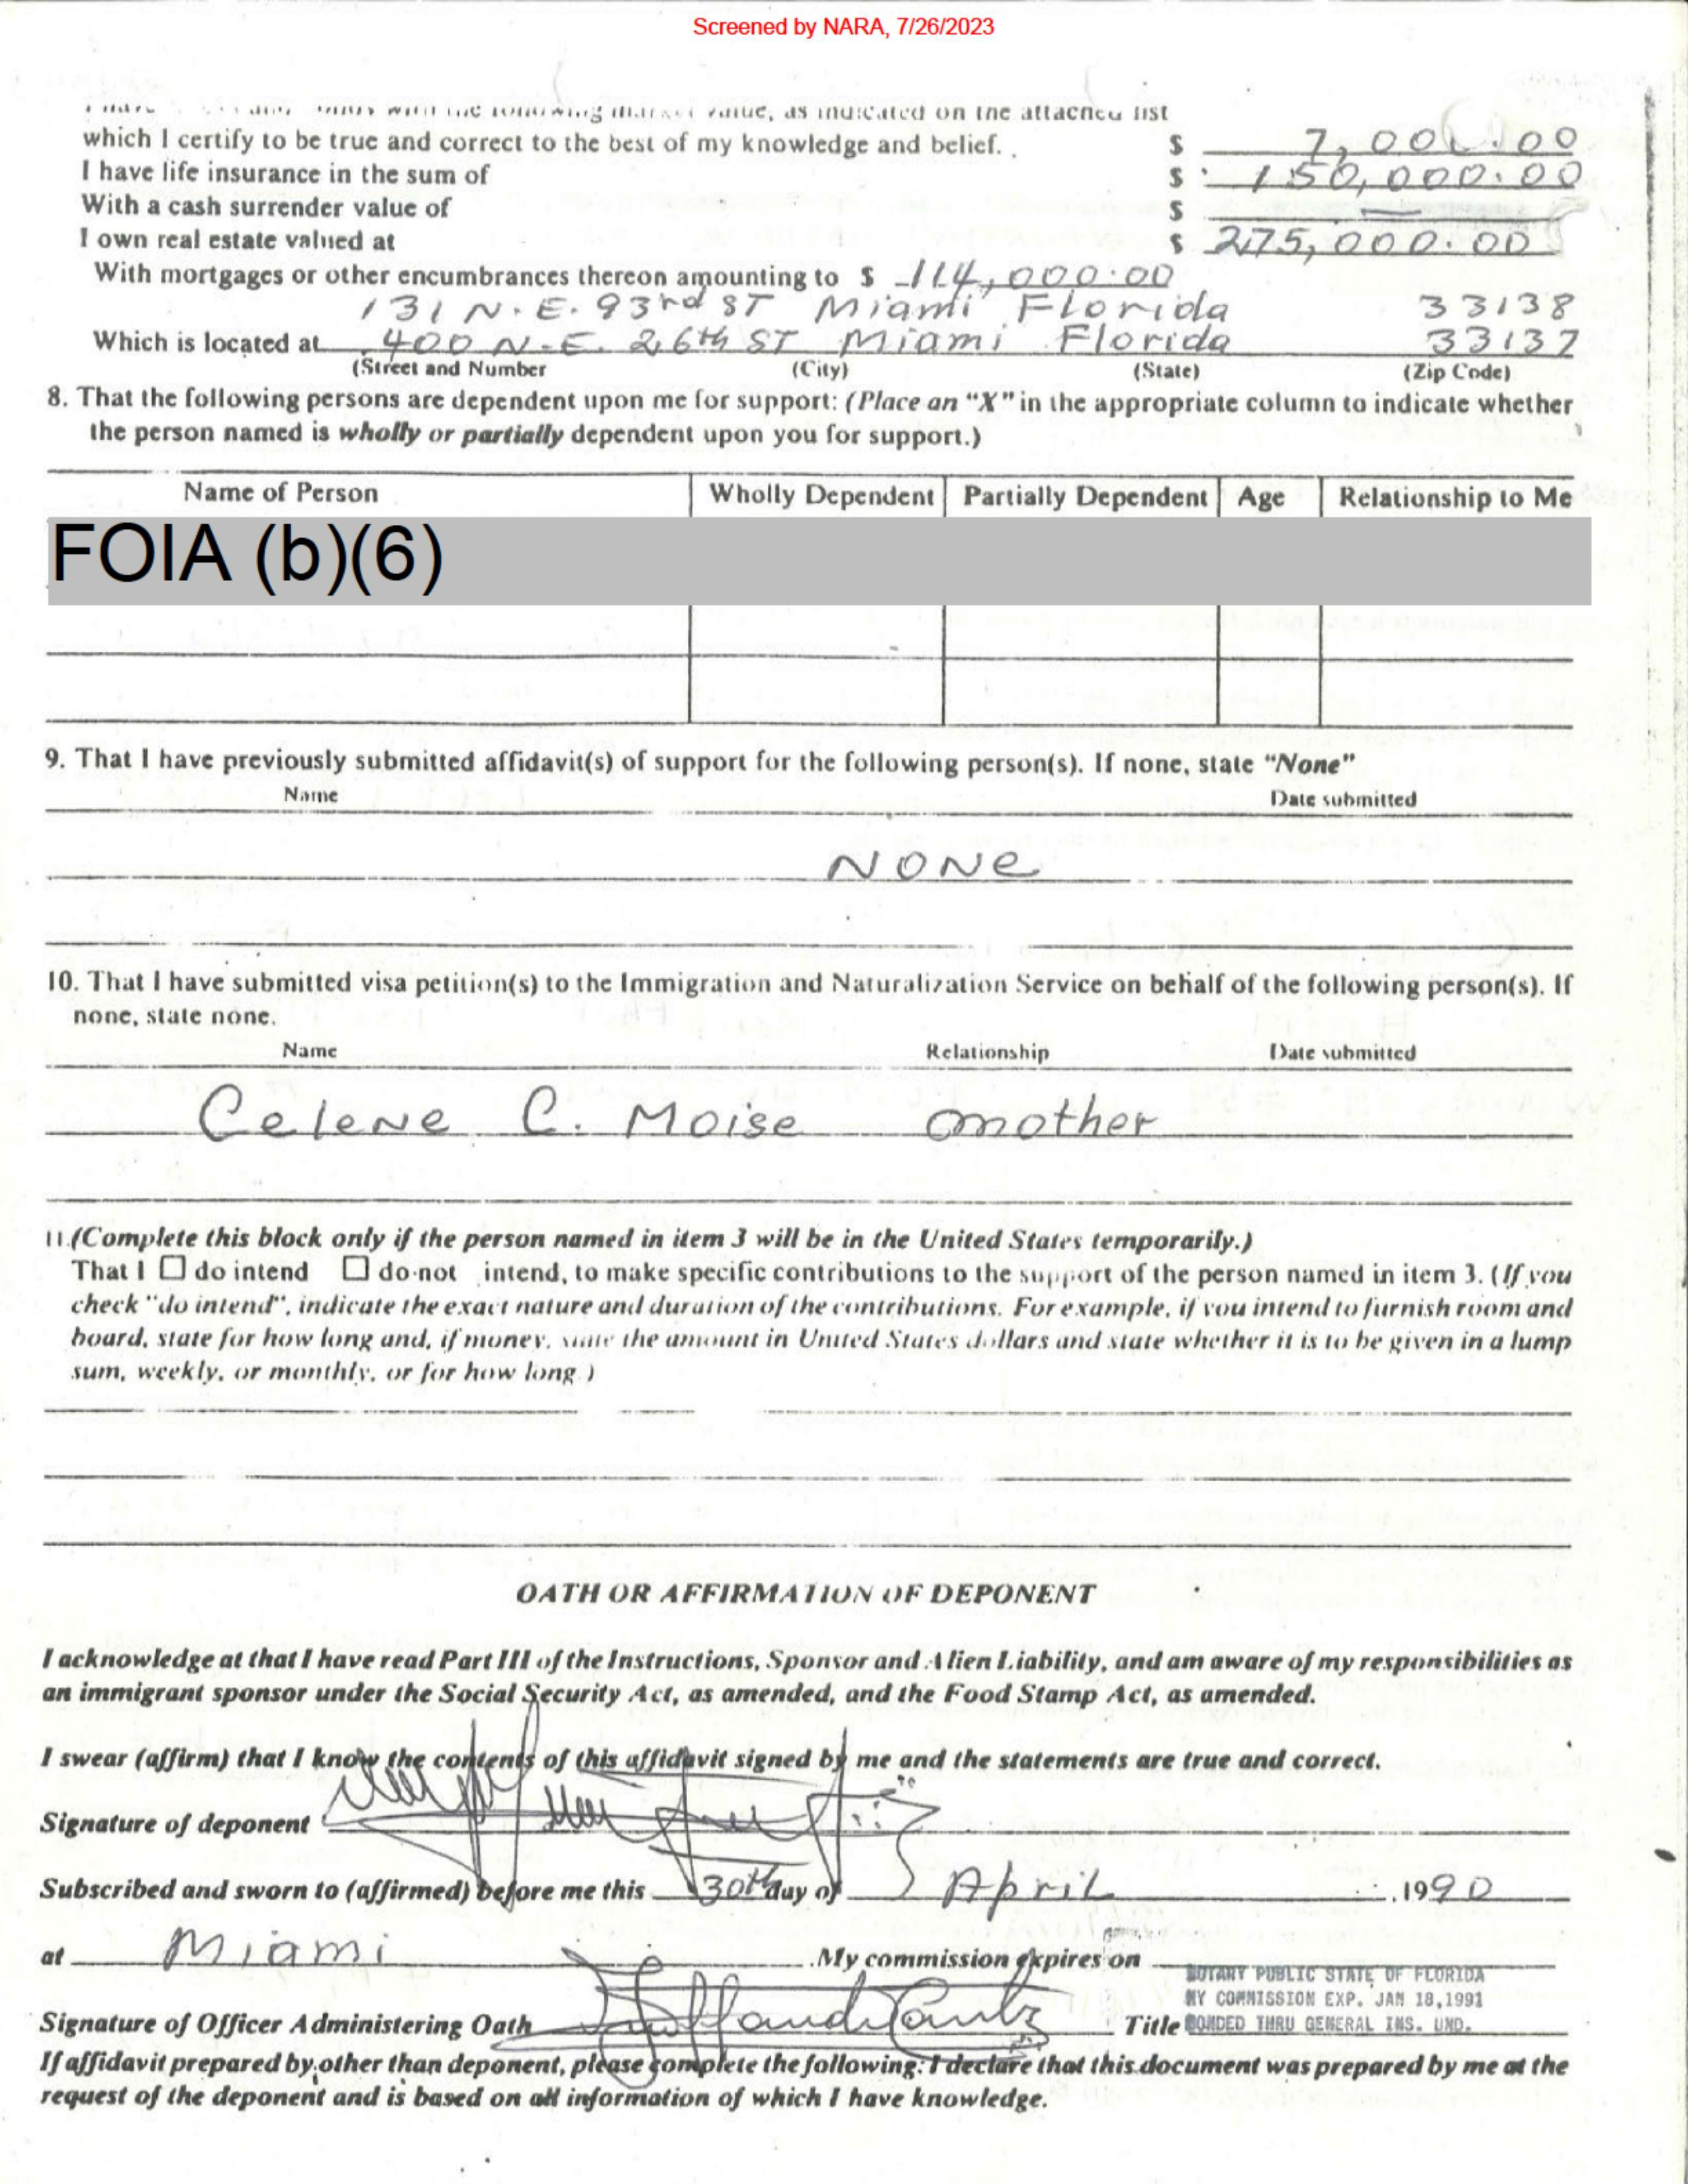 Screened by NARA, 7/26/2023
with the following market value, as indicated on the attached list
which I certify to be true and correct to the best of my knowledge and belief. . $ 7,000.00
I have life insurance in the sum of $ 150,000.00
With a cash surrender value of $ —
I own real estate valued at $ 275,000.00
With mortgages or other encumbrances thereon amounting to $ 114,000.00
131 N.E. 93rd ST Miami Florida 33138
Which is located at 400 N.E. 26th ST Miami Florida 33137
(Street and Number (City) (State) (Zip Code)
8. That the following persons are dependent upon me for support: (Place an "X" in the appropriate column to indicate whether
the person named is wholly or partially dependent upon you for support.)
Name of Person Wholly Dependent Partially Dependent Age Relationship to Me
FOIA (b)(6)
9. That I have previously submitted affidavit(s) of support for the following person(s). If none, state "None"
Name Date submitted
NONe
10. That I have submitted visa petition(s) to the Immigration and Naturalization Service on behalf of the following person(s). If
none, state none.
Name Relationship Date submitted
CeleNe C. Moise mother
11.(Complete this block only if the person named in item 3 will be in the United States temporarily.)
That I ☐ do intend ☐ do not intend, to make specific contributions to the support of the person named in item 3. (If you
check "do intend", indicate the exact nature and duration of the contributions. For example, if you intend to furnish room and
board, state for how long and, if money, state the amount in United States dollars and state whether it is to be given in a lump
sum, weekly, or monthly, or for how long.)
OATH OR AFFIRMATION OF DEPONENT
I acknowledge at that I have read Part III of the Instructions, Sponsor and Alien Liability, and am aware of my responsibilities as
an immigrant sponsor under the Social Security Act, as amended, and the Food Stamp Act, as amended.
I swear (affirm) that I know the contents of this affidavit signed by me and the statements are true and correct.
Signature of deponent
Subscribed and sworn to (affirmed) before me this 30th day of April .1990
at Miami .My commission expires on
NOTARY PUBLIC STATE OF FLORIDA
MY COMMISSION EXP. JAN 18,1991
Signature of Officer Administering Oath Title BONDED THRU GENERAL INS. UND.
If affidavit prepared by other than deponent, please complete the following: I declare that this document was prepared by me at the
request of the deponent and is based on all information of which I have knowledge.